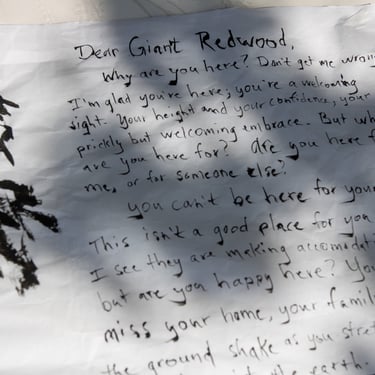 Dear Giant Redwood,
Why are you here? Don't get me wrong
I'm glad you're here; you're a welcoming
sight. Your height and your confidence, your
prickly but welcoming embrace. But wh
are you here for? Are you here f
me, or for someone else?
You can't be here for your
This isn't a good place for you
I see they are making accomodati
but are you happy here? You
miss your home, your famil
the ground shake as you stret
the earth.